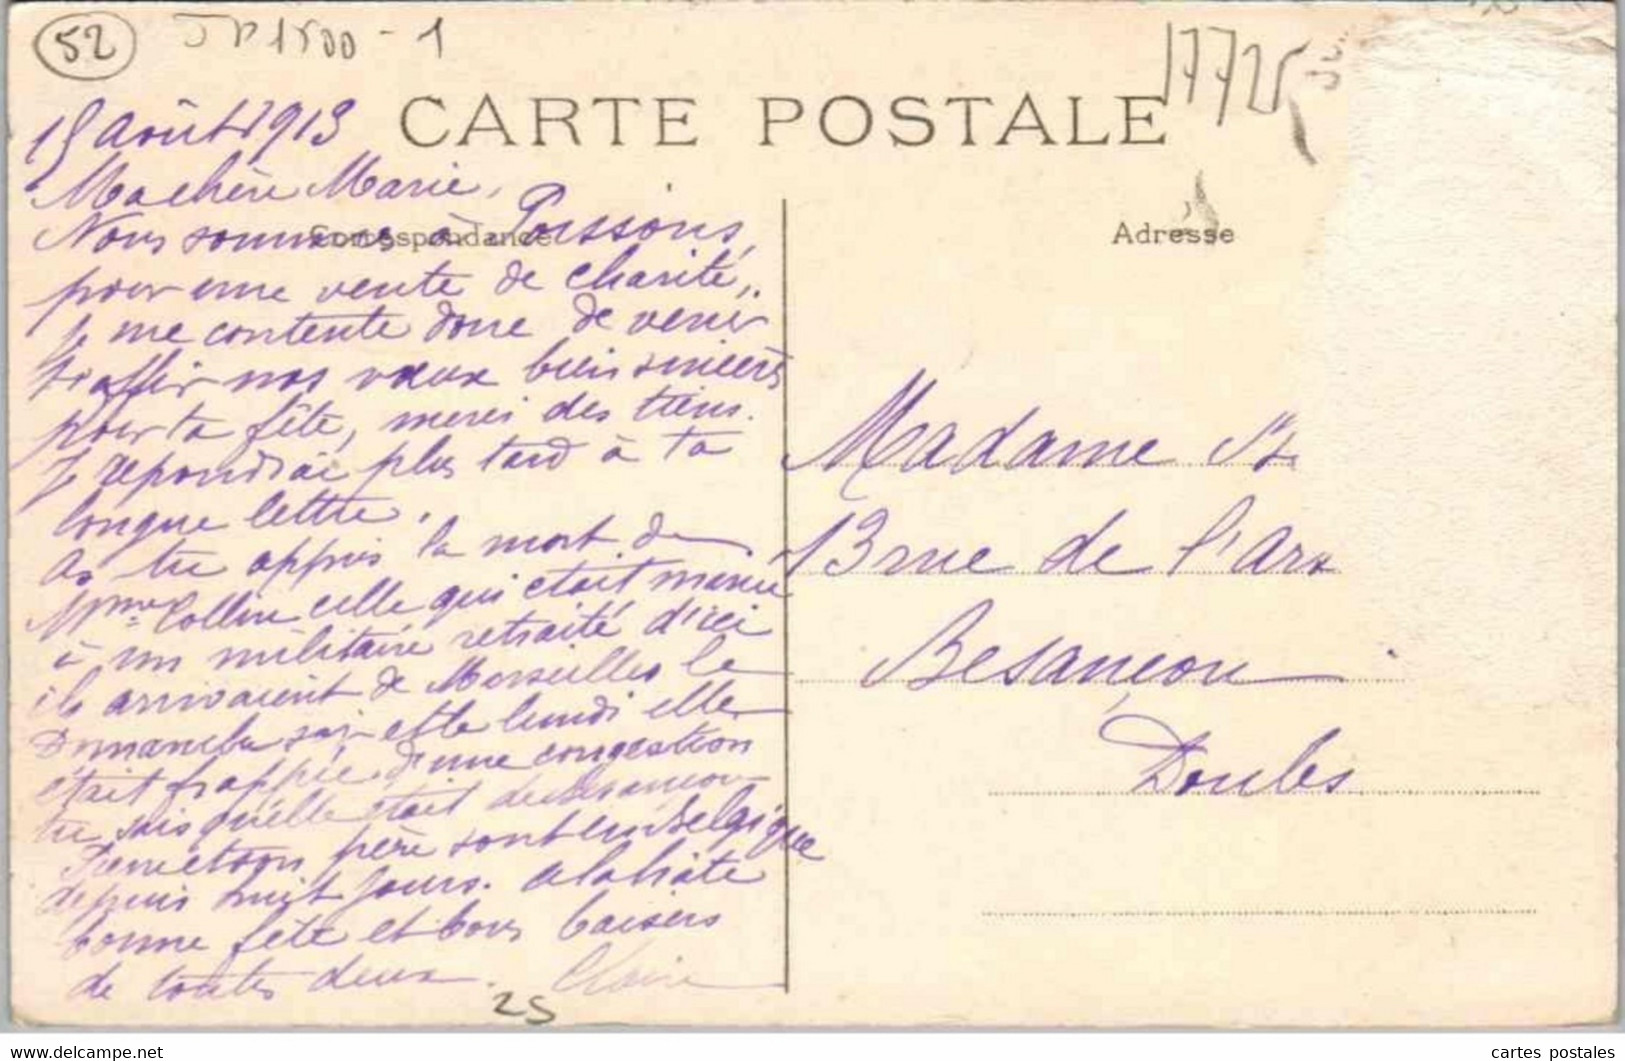 52
JP1500-1
1772
CARTE POSTALE
Correspondance
Adresse
15 août 1913
Ma chère Marie,
Nous sommes à Poissons,
pour une vente de charité,
je me contente donc de venir
t'offrir nos vœux bien sincères
pour ta fête, merci des tiens.
Je repondrai plus tard à ta
longue lettre.
As tu appris la mort de
Mme Colline celle qui était mariée
à un militaire retraité d'ici
ils arrivaient de Marseilles le
Dimanche soir et le lundi elle
était frappée d'une congestion
tu sais qu'elle était de Besançon
Pierre et son père sont en Belgique
depuis huit jours. à la hâte
bonne fête et bons baisers
de toutes deux. Claire
25
Madame
13 rue de l'Ar
Besançon
Doubs
www.delcampe.net
cartes postales